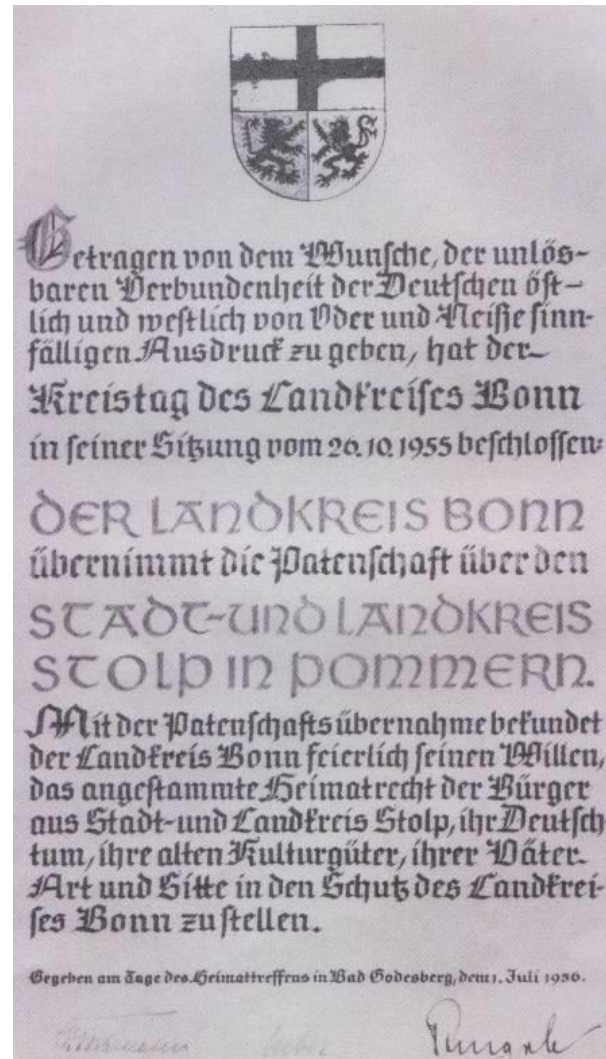 Getragen von dem Wunsche, der unlös-
baren Verbundenheit der Deutschen öst-
lich und westlich von Oder und Neiße sinn-
fälligen Ausdruck zu geben, hat der
Kreistag des Landkreises Bonn
in seiner Sitzung vom 20.10.1955 beschlossen:
DER LANDKREIS BONN
übernimmt die Patenschaft über den
STADT-UND LANDKREIS
STOLP IN POMMERN.
Mit der Patenschaftsübernahme bekundet
der Landkreis Bonn feierlich seinen Willen,
das angestammte Heimatrecht der Bürger
aus Stadt-und Landkreis Stolp, ihr Deutsch
tum, ihre alten Kulturgüter, ihrer Väter
Art und Sitte in den Schutz des Landkrei-
ses Bonn zu stellen.
Gegeben am Tage des Heimattreffens in Bad Godesberg, dem 1. Juli 1956.